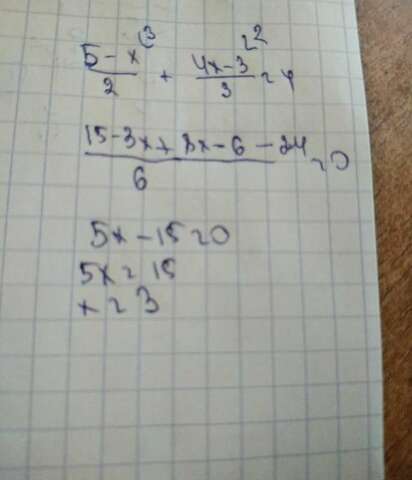 (5-x)/2 ⌣3 + (4x-3)/3 ⌣2 = 4
(15-3x+8x-6-24)/6 = 0
5x-15=0
5x=15
x=3